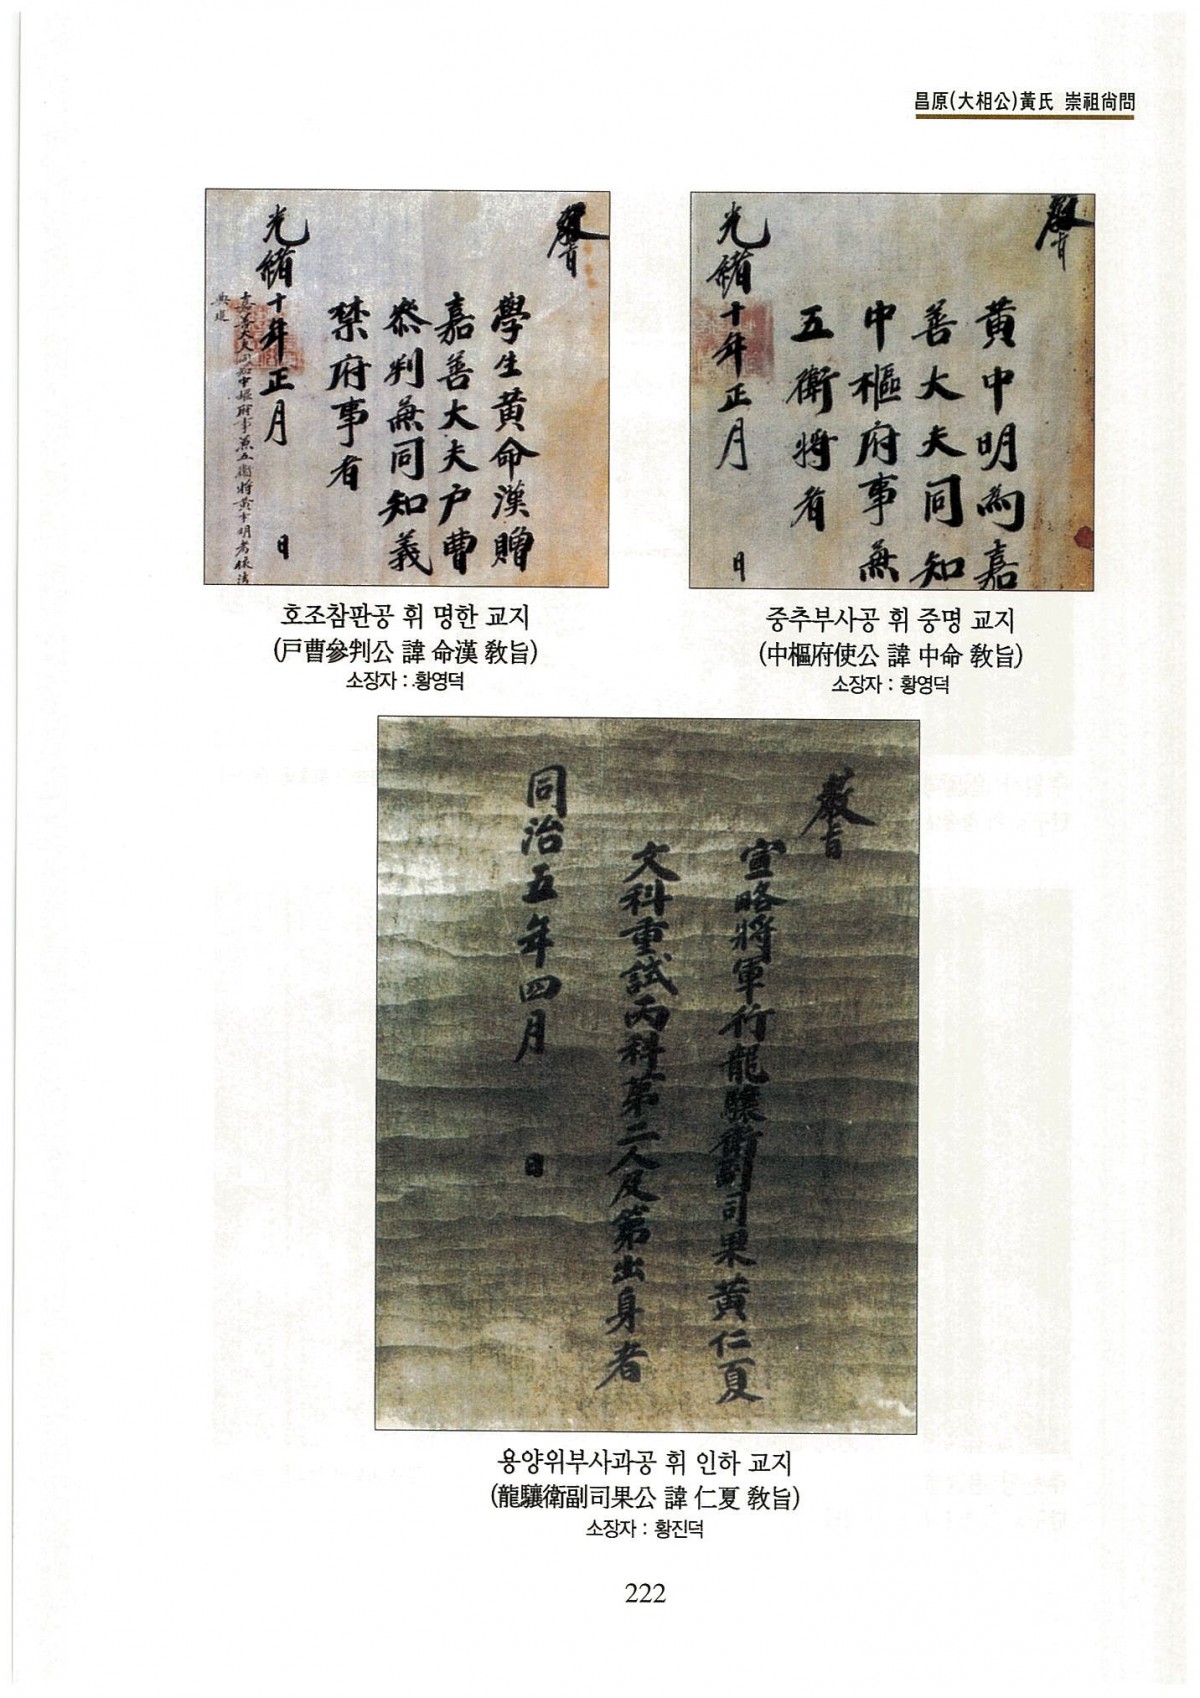 昌原(大相公)黃氏 崇祖尙問
敎旨
學生黃命漢贈
嘉善大夫户曹
叅判兼同知義
禁府事者
光緖十年正月 日
嘉善大夫同知中樞府事兼五衛將黃中明考依法
典追
호조참판공 휘 명한 교지
(戶曹參判公 諱 命漢 敎旨)
소장자 : 황영덕
敎旨
黃中明爲嘉
善大夫同知
中樞府事兼
五衛將者
光緖十年正月 日
중추부사공 휘 중명 교지
(中樞府使公 諱 中命 敎旨)
소장자 : 황영덕
敎旨
宣略將軍行龍驤衛副司果黃仁夏
文科重試丙科第二人及第出身者
同治五年四月 日
용양위부사과공 휘 인하 교지
(龍驤衛副司果公 諱 仁夏 敎旨)
소장자 : 황진덕
222